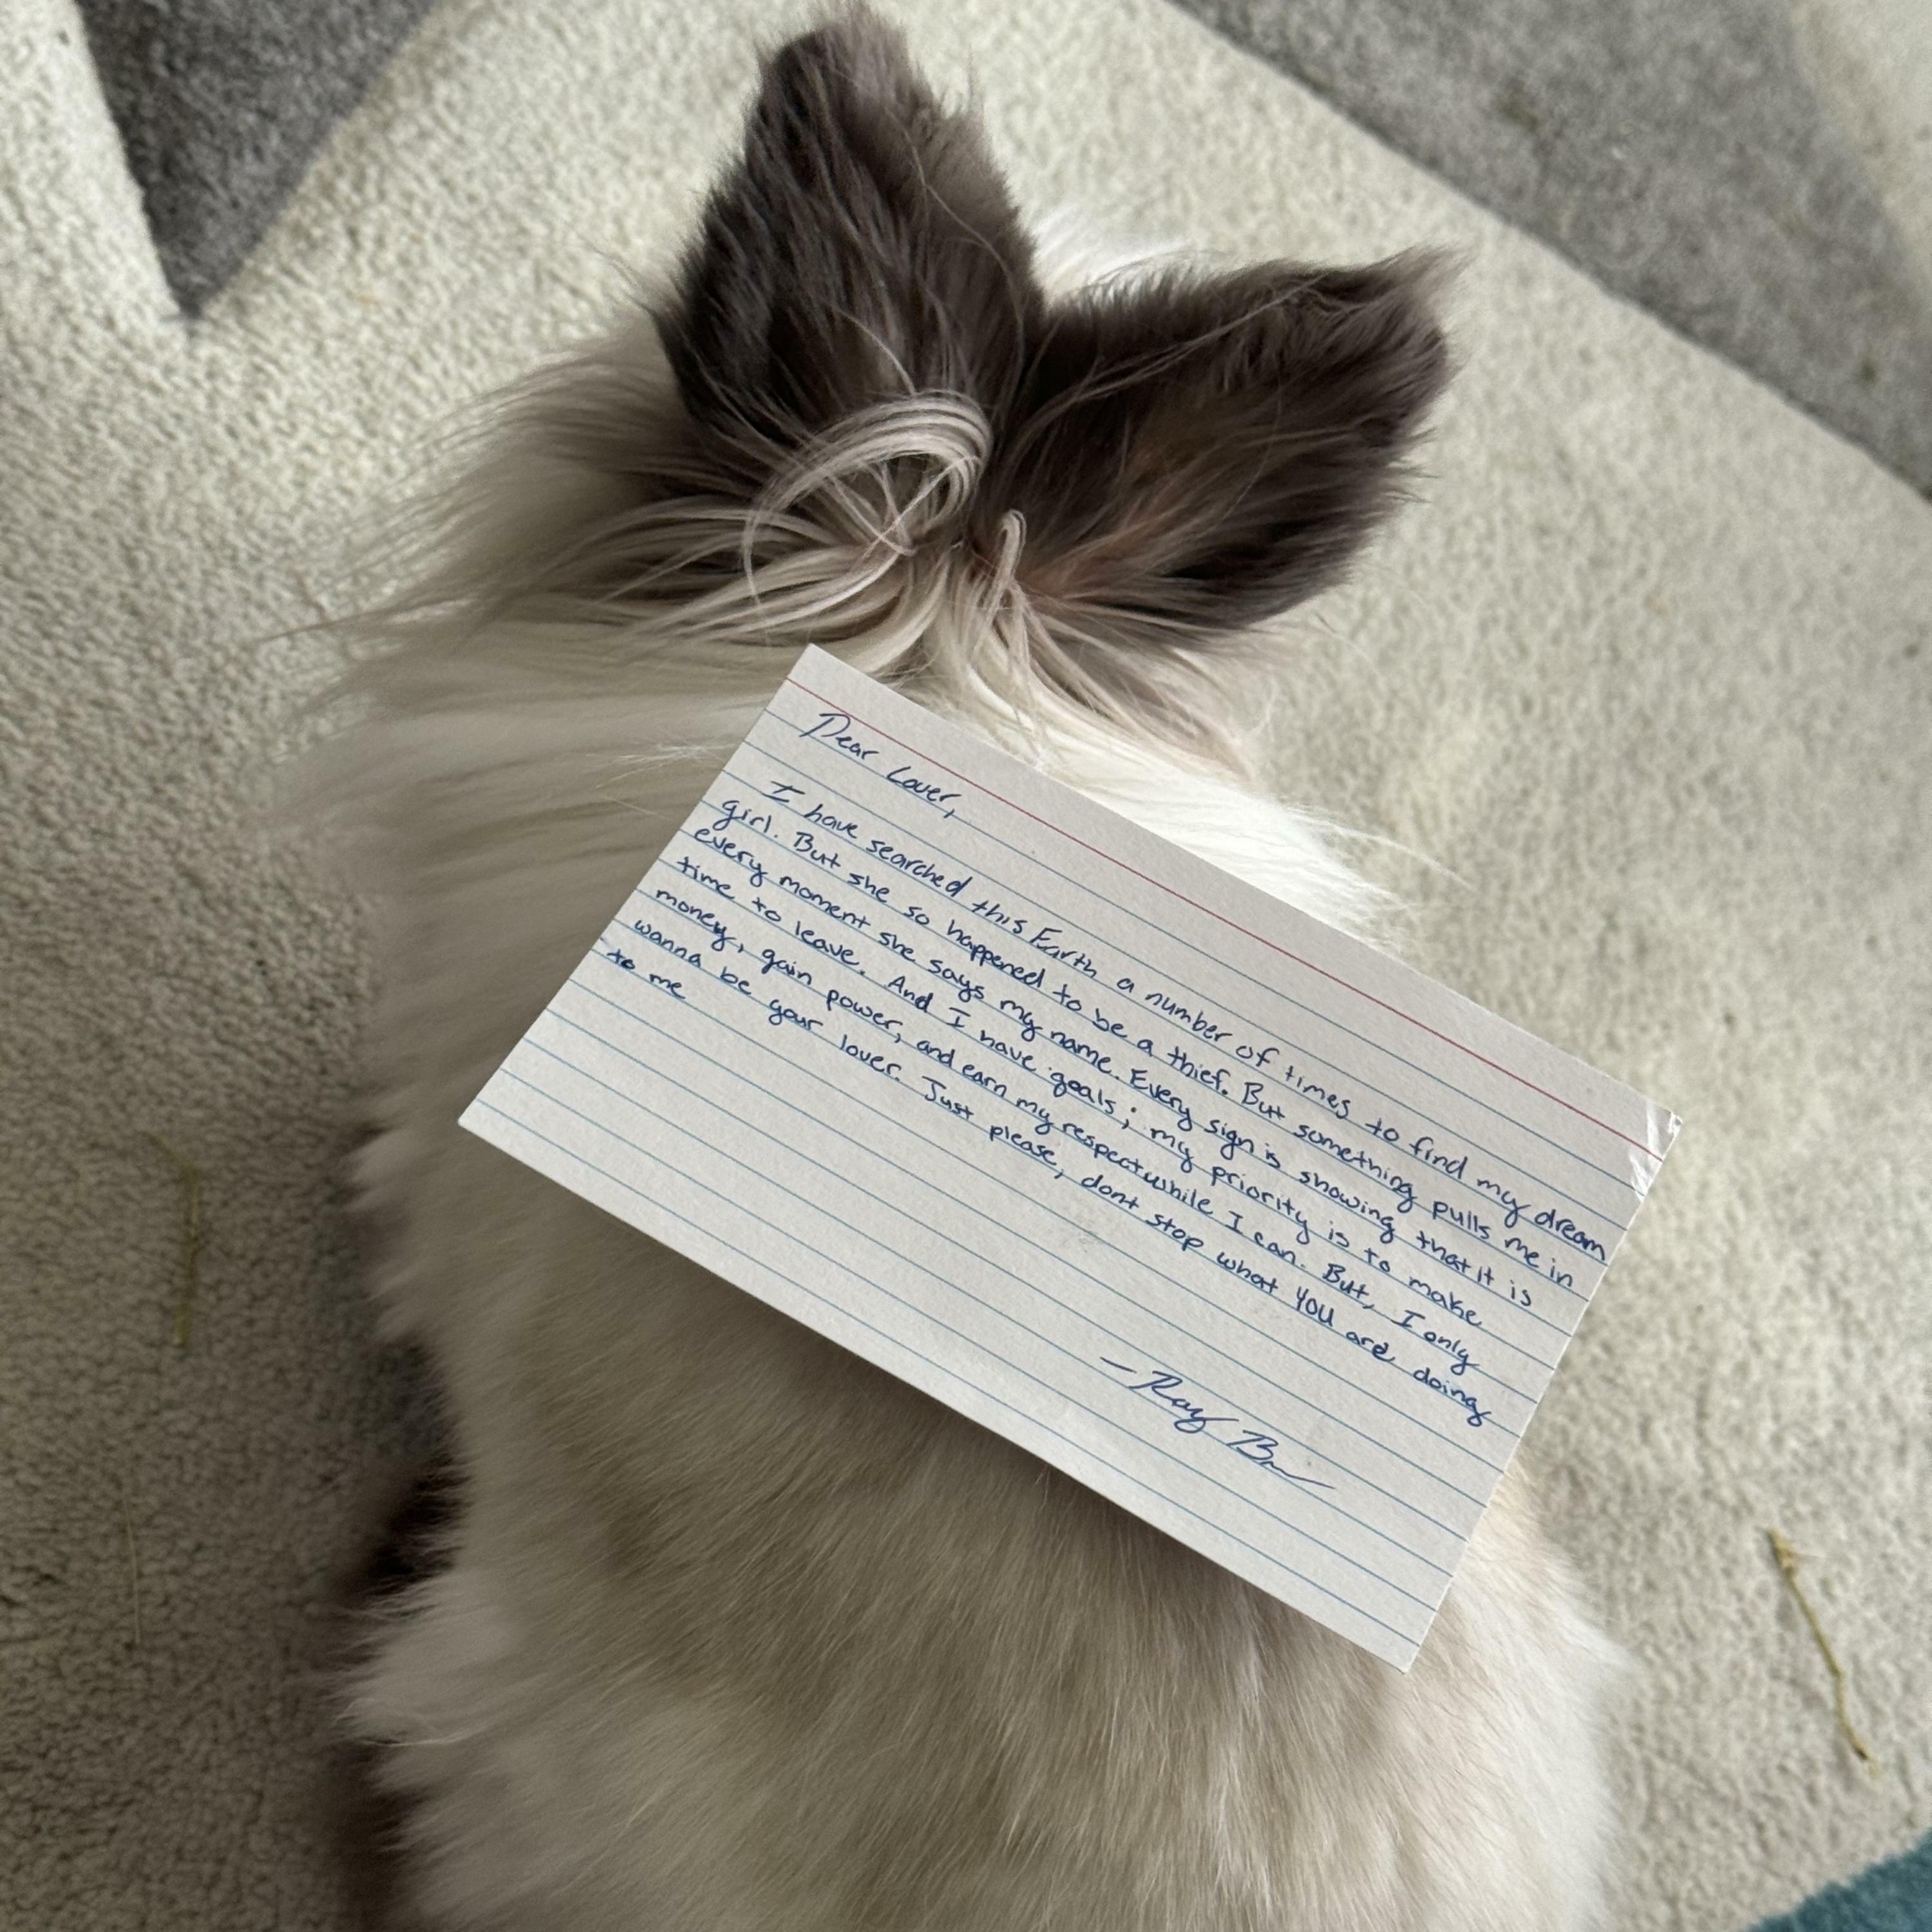 Dear Lover,
I have searched this Earth a number of times to find my dream
girl. But she so happened to be a thief. But something pulls me in
every moment she says my name. Every sign is showing that it is
time to leave. And I have goals; my priority is to make
money, gain power, and earn my respect while I can. But, I only
wanna be your lover. Just please, dont stop what YOU are doing
to me
- Ray